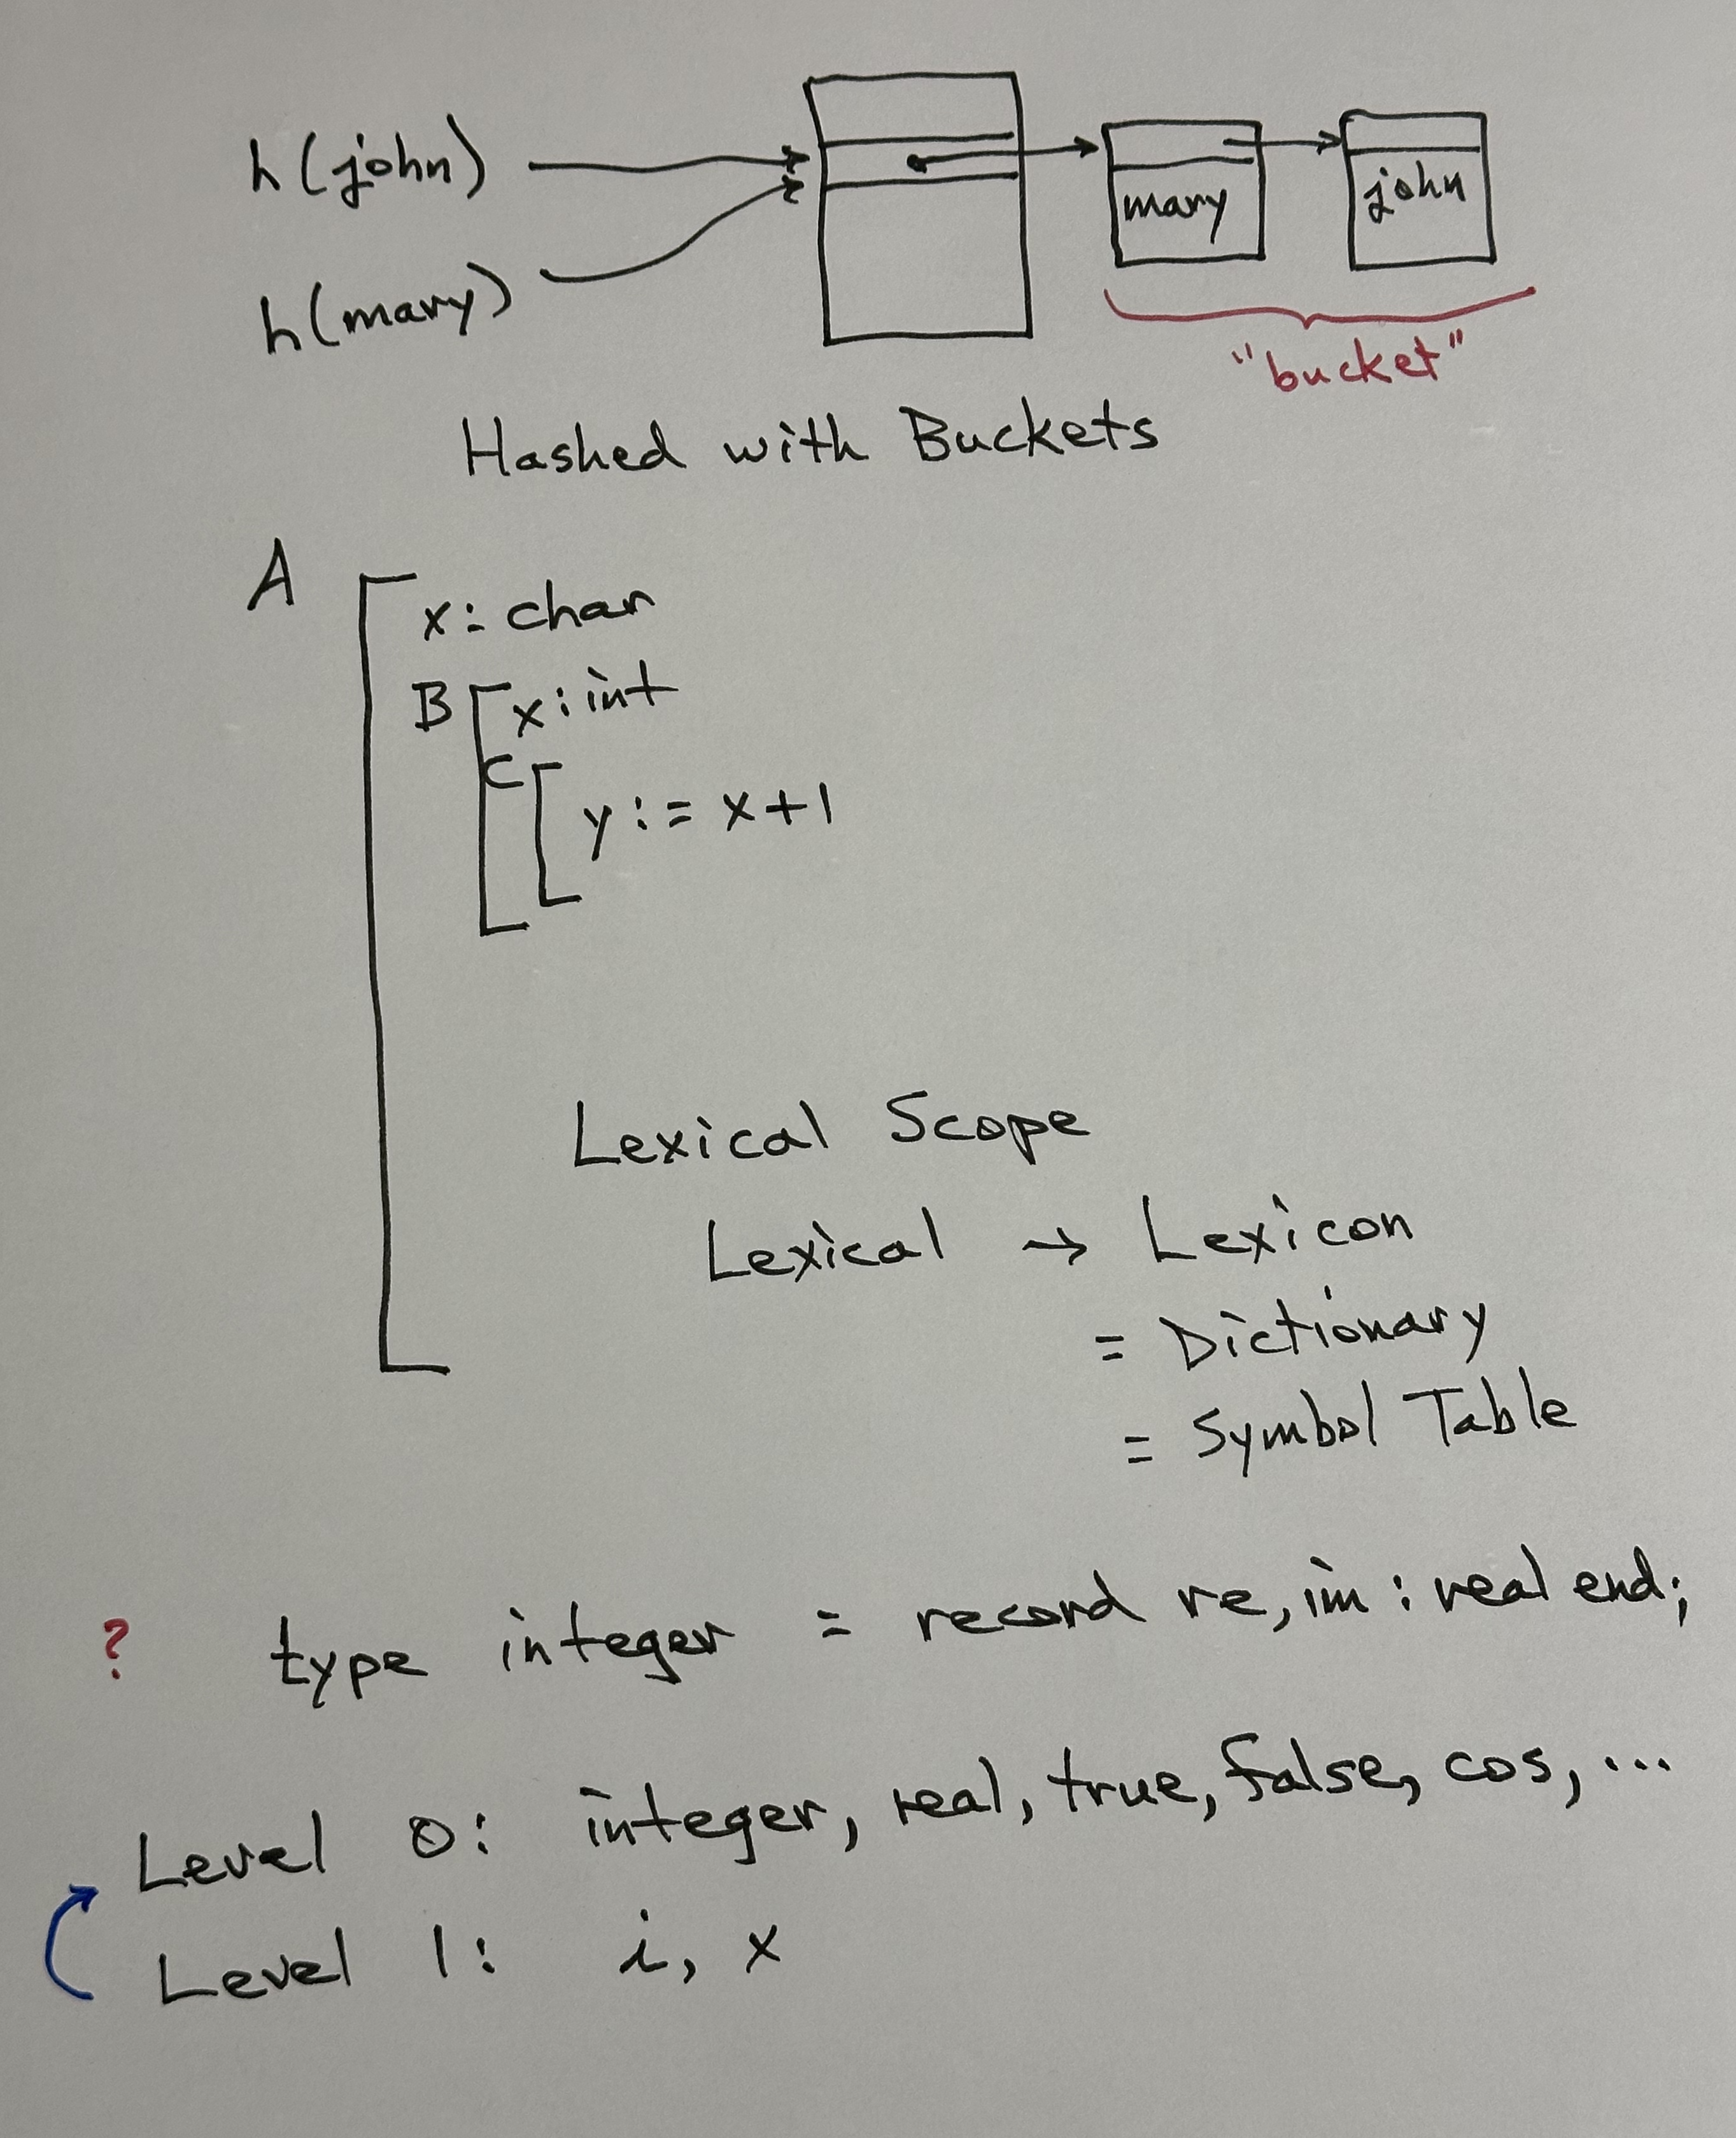 h(john)
h(mary)
mary
john
"bucket"
Hashed with Buckets
A
x: char
B x: int
C
y := x+1
Lexical Scope
Lexical → Lexicon
= Dictionary
= Symbol Table
? type integer = record re, im : real end;
Level 0: integer, real, true, false, cos, ...
Level 1: i, x